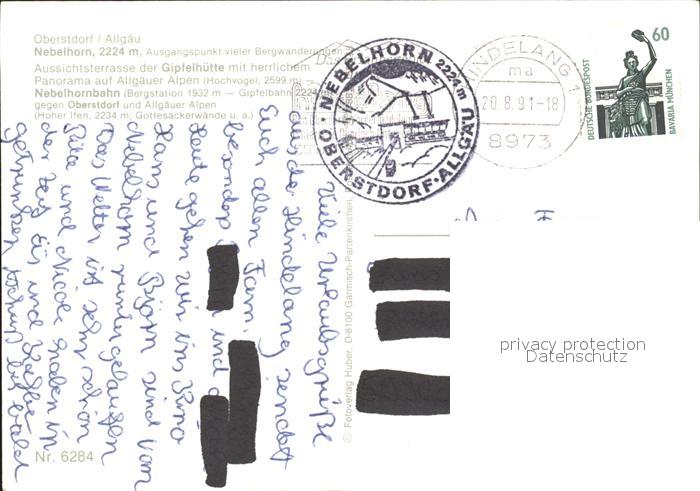 Oberstdorf / Allgäu
Nebelhorn, 2224 m, Ausgangspunkt vieler Bergwanderungen
Aussichtsterrasse der Gipfelhütte mit herrlichem
Panorama auf Allgäuer Alpen (Hochvogel, 2599 m)
Nebelhornbahn (Bergstation 1932 m — Gipfelbahn 2224
gegen Oberstdorf und Allgäuer Alpen
(Hoher Ifen, 2234 m; Gottesackerwände u. a.)
NEBELHORN 2224 m
OBERSTDORF · ALLGÄU
HINDELANG 1
ma
20.8.91-18
8973
60
DEUTSCHE BUNDESPOST
BAVARIA MÜNCHEN
Viele Urlaubsgrüße
aus de Hindelang sendet
Euch allen Fam.
besonders und
Heute gehen wir ins Kino
Hans und Björn sind vom
Nebelhorn runtergelaufen
Das Wetter ist sehr schön
Rita und Nicole haben in
der Zeit Eis und Kaffee
getrunken bis bald
© Fotoverlag Huber, D-8100 Garmisch-Partenkirchen,
Nr. 6284
privacy protection
Datenschutz